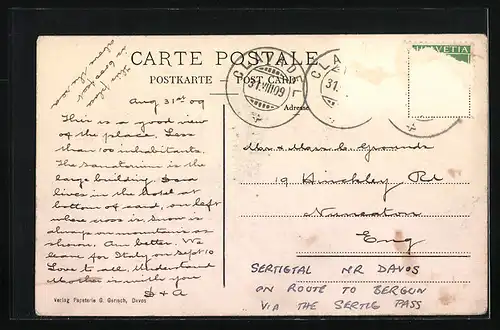 CARTE POSTALE
POSTKARTE POST CARD
Adresse
HELVETIA
31.VIII.09
31.
Aug 31st 09
This is a good view
of the place. Less
than 100 inhabitants.
The sanatorium is the
large building.
lives in the hotel at
bottom of card, on left
where cross is. Snow is
always on mountains as
shown. Am better. We
leave for Italy on Sept 10
Love to all. Understand
is with you
S & A
19 Hinckley Rd
Nuneaton
Eng
SERTIGTAL NR DAVOS
ON ROUTE TO BERGUN
VIA THE SERTIG PASS
Verlag Papeterie G. Gerisch, Davos